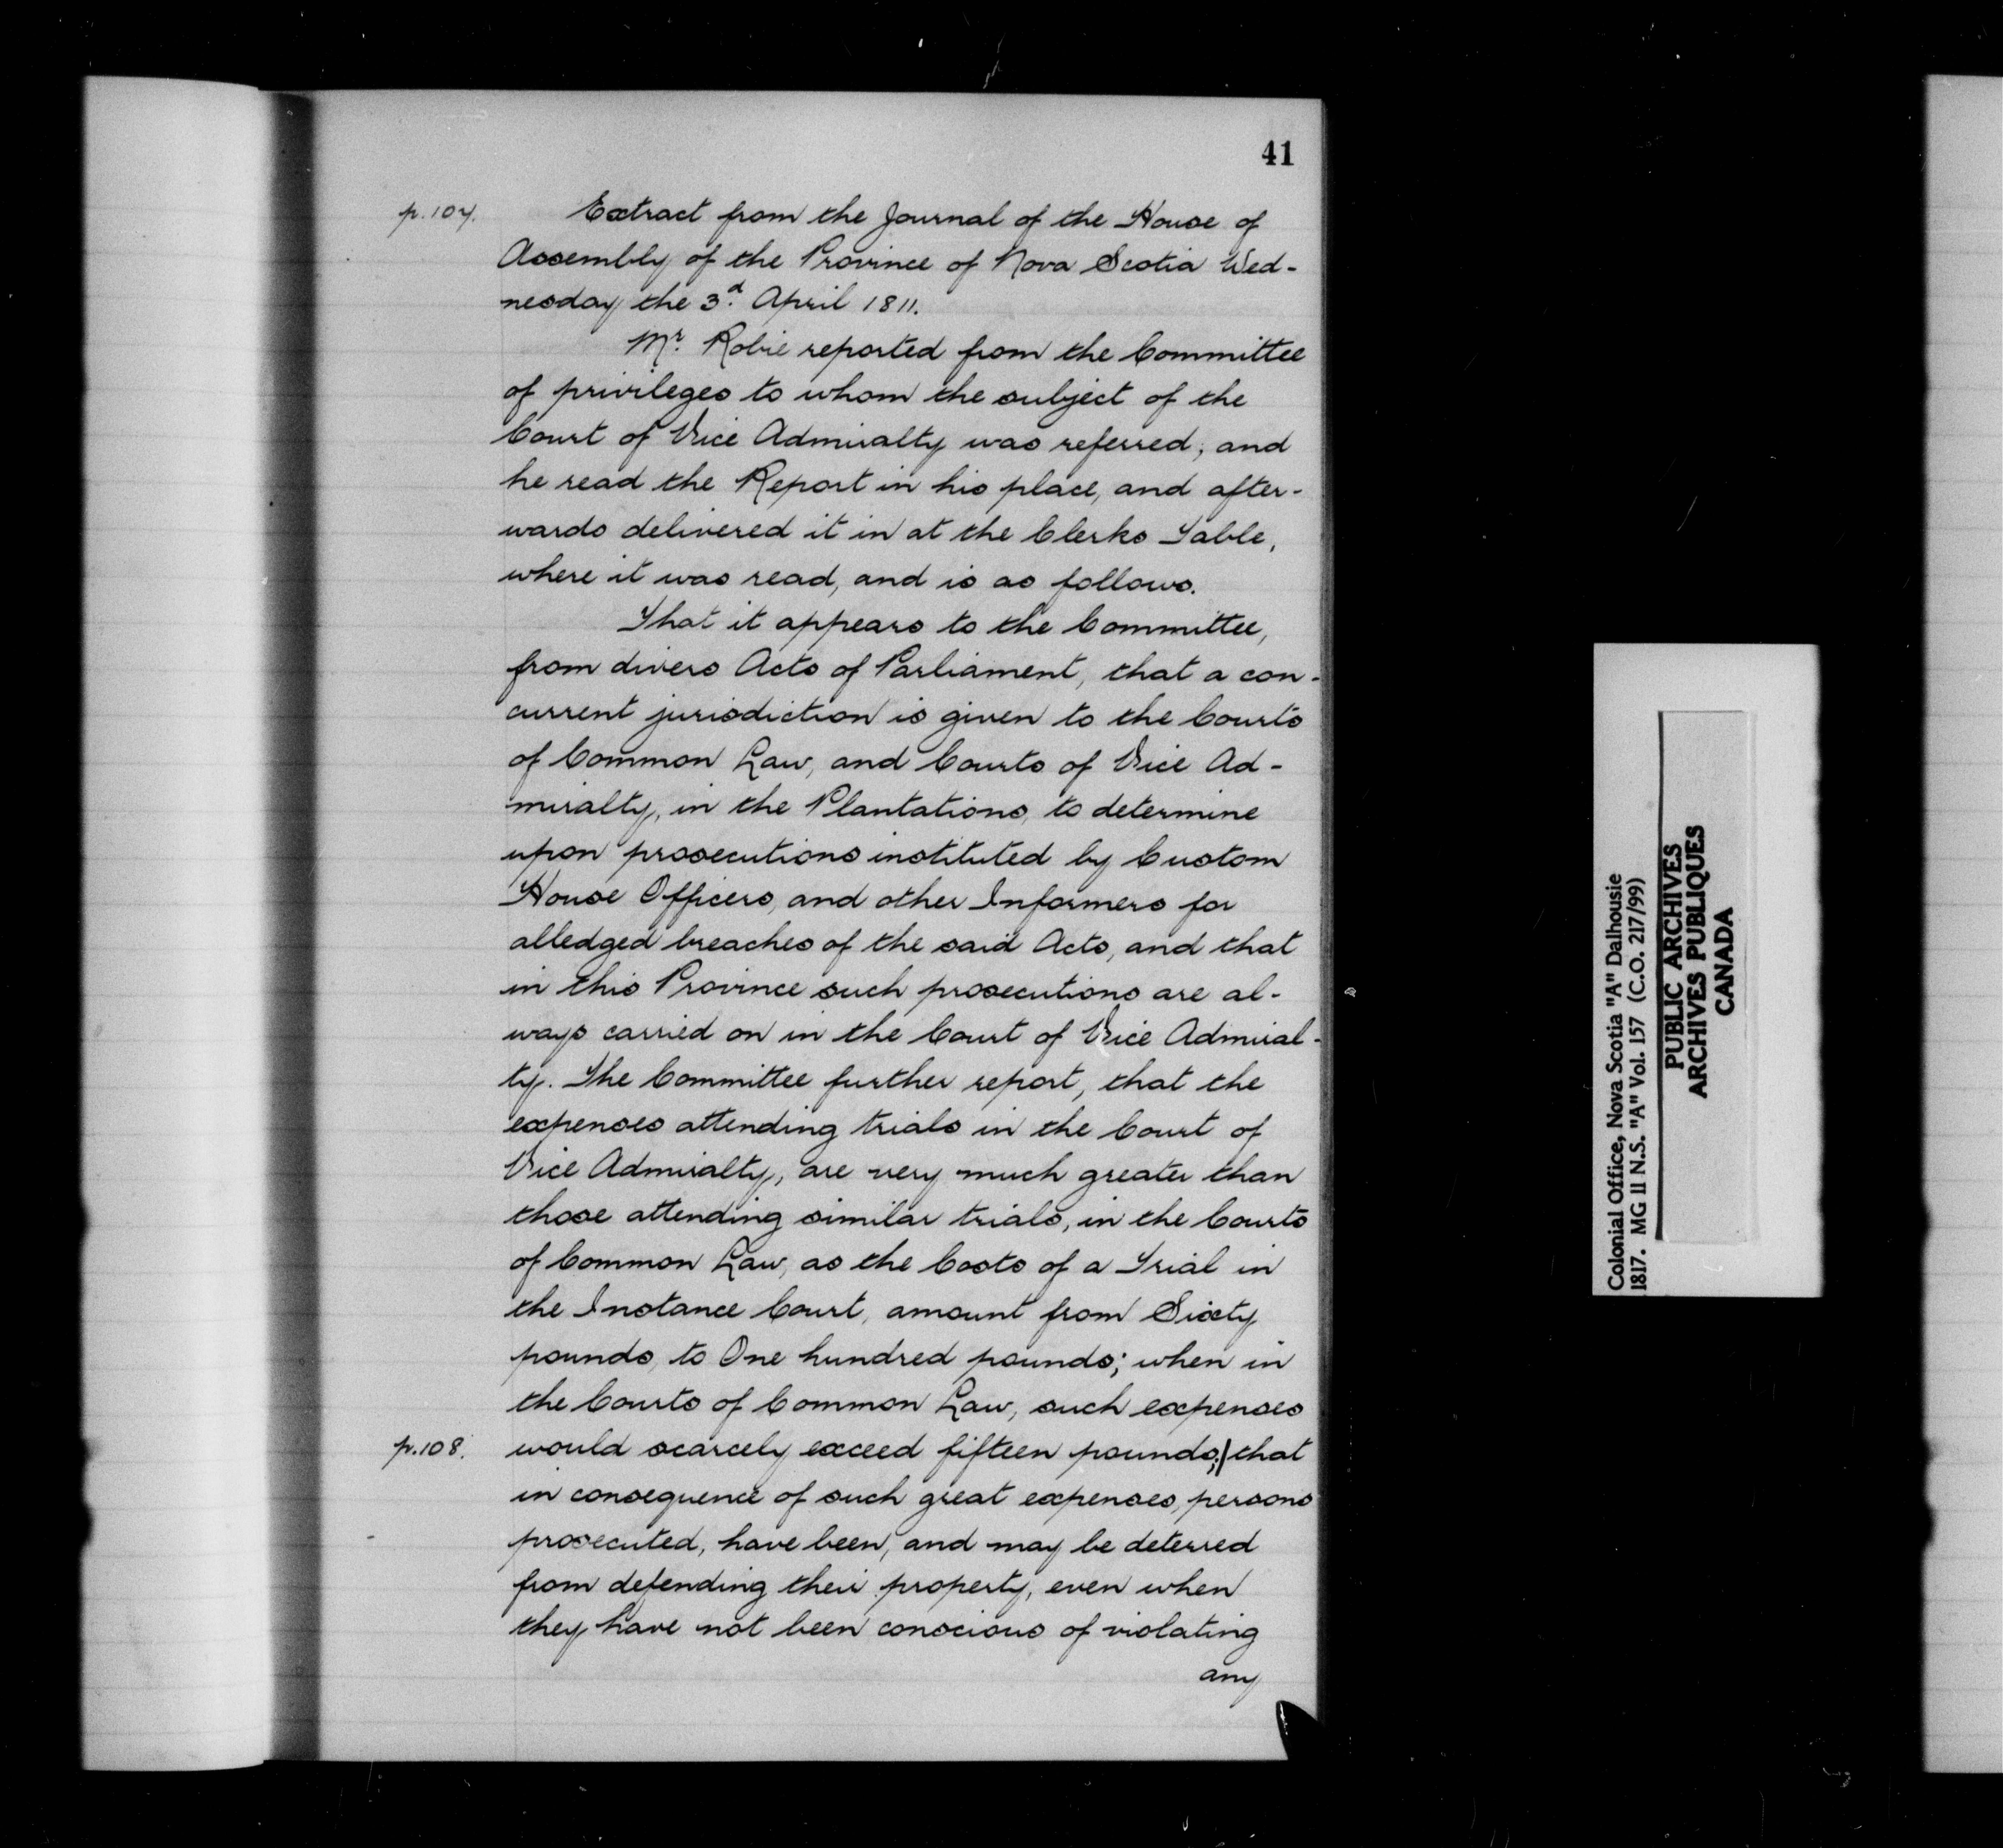 41
p. 107.
Extract from the Journal of the House of
Assembly of the Province of Nova Scotia Wed-
nesday the 3d. April 1811.
Mr. Robie reported from the Committee
of privileges to whom the subject of the
Court of Vice Admiralty was referred; and
he read the Report in his place, and after-
wards delivered it in at the Clerks Table,
where it was read, and is as follows.
That it appears to the Committee,
from divers Acts of Parliament, that a con-
current jurisdiction is given to the Courts
of Common Law, and Courts of Vice Ad-
miralty, in the Plantations, to determine
upon prosecutions instituted by Custom
House Officers, and other Informers for
alledged breaches of the said Acts, and that
in this Province such prosecutions are al-
ways carried on in the Court of Vice Admiral-
ty. The Committee further report, that the
expenses attending trials in the Court of
Vice Admiralty, are very much greater than
those attending similar trials, in the Courts
of Common Law, as the Costs of a Trial in
the Instance Court, amount from Sixty
pounds, to One hundred pounds; when in
the Courts of Common Law, such expenses
p. 108.
would scarcely exceed fifteen pounds;| that
in consequence of such great expenses, persons
prosecuted, have been, and may be deterred
from defending their property, even when
they have not been conscious of violating
any
Colonial Office, Nova Scotia "A" Dalhousie
1817. MG 11 N.S. "A" Vol. 157 (C.O. 217/99)
PUBLIC ARCHIVES
ARCHIVES PUBLIQUES
CANADA